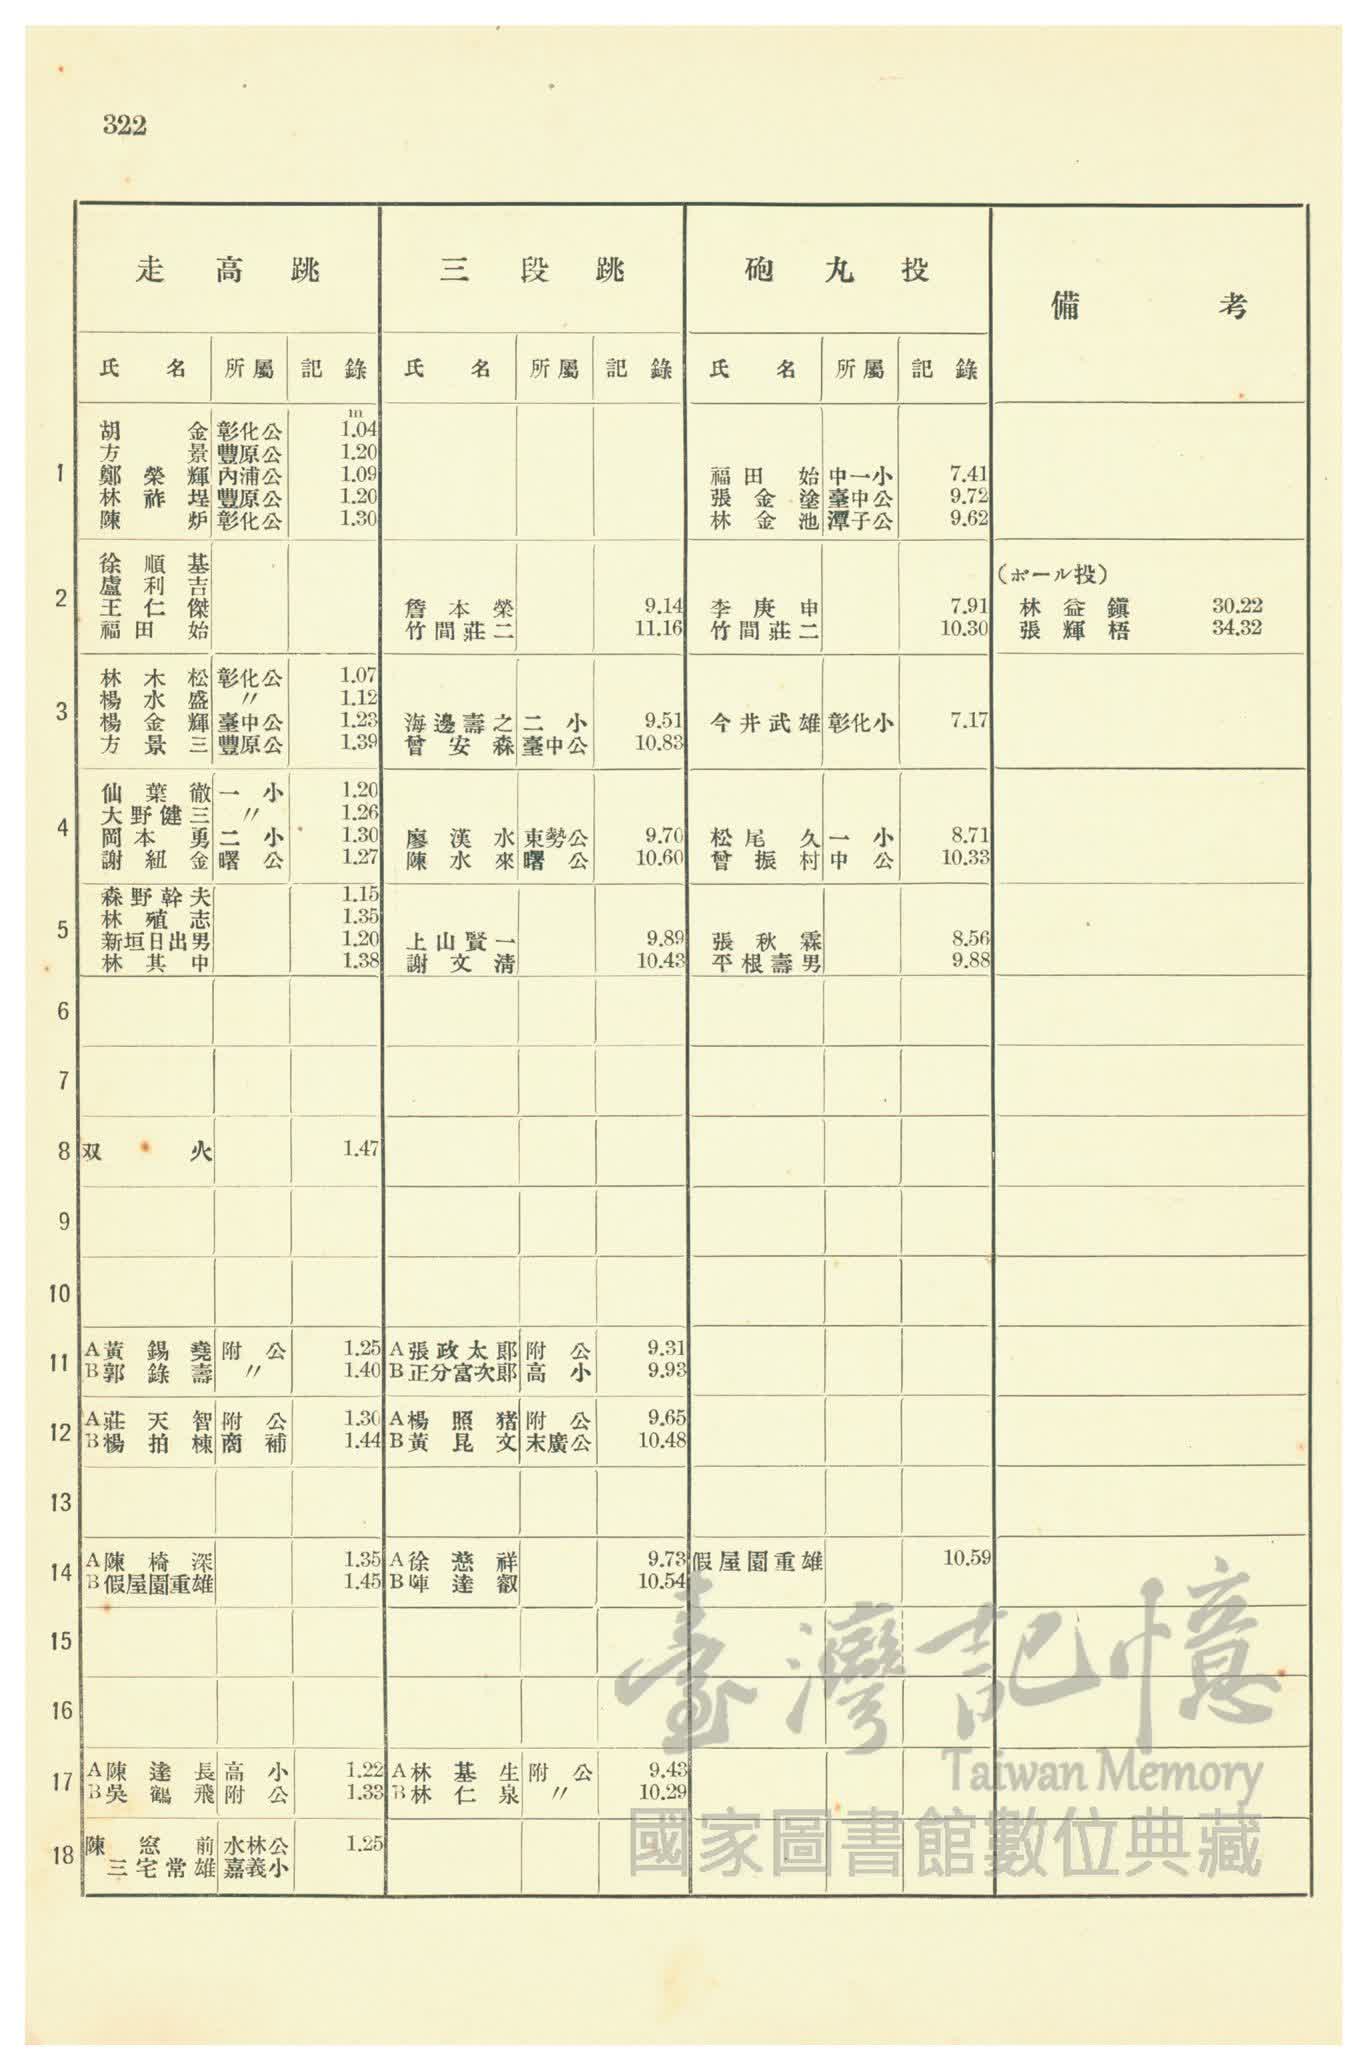 322
走高跳 三段跳 砲丸投 備考
氏名 所屬 記錄 氏名 所屬 記錄 氏名 所屬 記錄
m
胡金 彰化公 1.04
方景 豐原公 1.20
1 鄭榮輝 內浦公 1.09 福田始 中一小 7.41
林祚埕 豐原公 1.20 張金塗 臺中公 9.72
陳炉 彰化公 1.30 林金池 潭子公 9.62
徐順基
盧利吉 (ボール投)
2 王仁傑 詹本榮 9.14 李庚申 7.91 林益鎭 30.22
福田始 竹間莊二 11.16 竹間莊二 10.30 張輝梧 34.32
林木松 彰化公 1.07
楊水盛 〃 1.12
3 楊金輝 臺中公 1.23 海邊壽之 二小 9.51 今井武雄 彰化小 7.17
方景三 豐原公 1.39 曾安森 臺中公 10.83
仙葉徹 一小 1.20
大野健三 〃 1.26
4 岡本勇 二小 1.30 廖漢水 東勢公 9.70 松尾久 一小 8.71
謝紐金 曙公 1.27 陳水來 曙公 10.60 曾振村 中公 10.33
森野幹夫 1.15
林殖志 1.35
5 新垣日出男 1.20 上山賢一 9.89 張秋霖 8.56
林其中 1.38 謝文淸 10.43 平根壽男 9.88
6
7
8 双火 1.47
9
10
A黃錫堯 附公 1.25 A張政太郎 附公 9.31
11 B郭錄壽 〃 1.40 B正分富次郎 高小 9.93
A莊天智 附公 1.30 A楊照猪 附公 9.65
12 B楊拍棟 商補 1.44 B黃昆文 末廣公 10.48
13
A陳椅深 1.35 A徐慈祥 9.73 假屋園重雄 10.59
14 B假屋園重雄 1.45 B陣達叡 10.54
15
16
A陳達長 高小 1.22 A林基生 附公 9.43
17 B吳鶴飛 附公 1.33 B林仁泉 〃 10.29
陳窓前 水林公 1.25
18 三宅常雄 嘉義小
臺灣記憶
Taiwan Memory
國家圖書館數位典藏